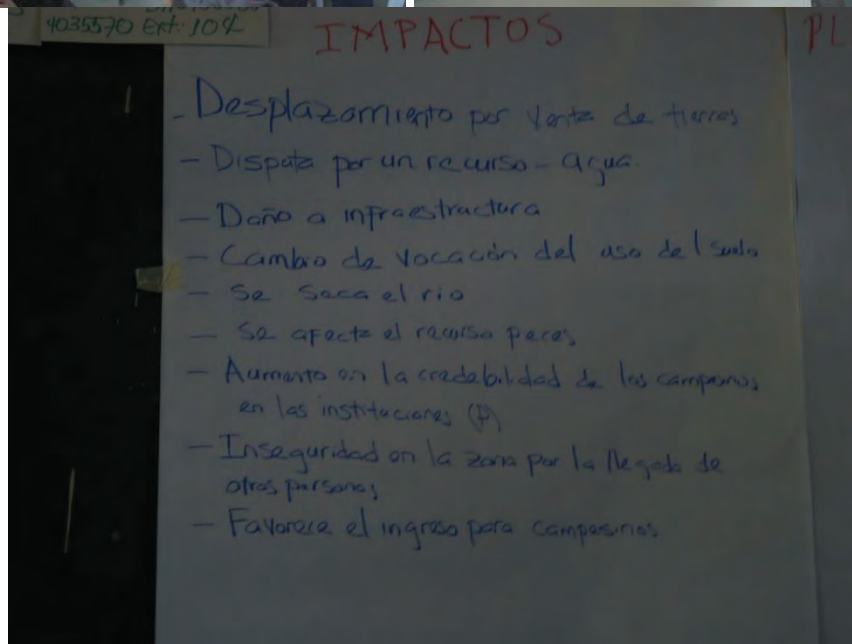 4035570 Ext: 104
IMPACTOS
PL
- Desplazamiento por Venta de tierras
- Disputa por un recurso - agua.
- Daño a infraestructura
- Cambio de vocación del uso del suelo
- Se seca el rio
- Se afecta el recurso peces
- Aumento en la credibilidad de los campesinos
en las instituciones (P)
- Inseguridad en la zona por la llegada de
otras personas
- Favorece el ingreso para campesinos